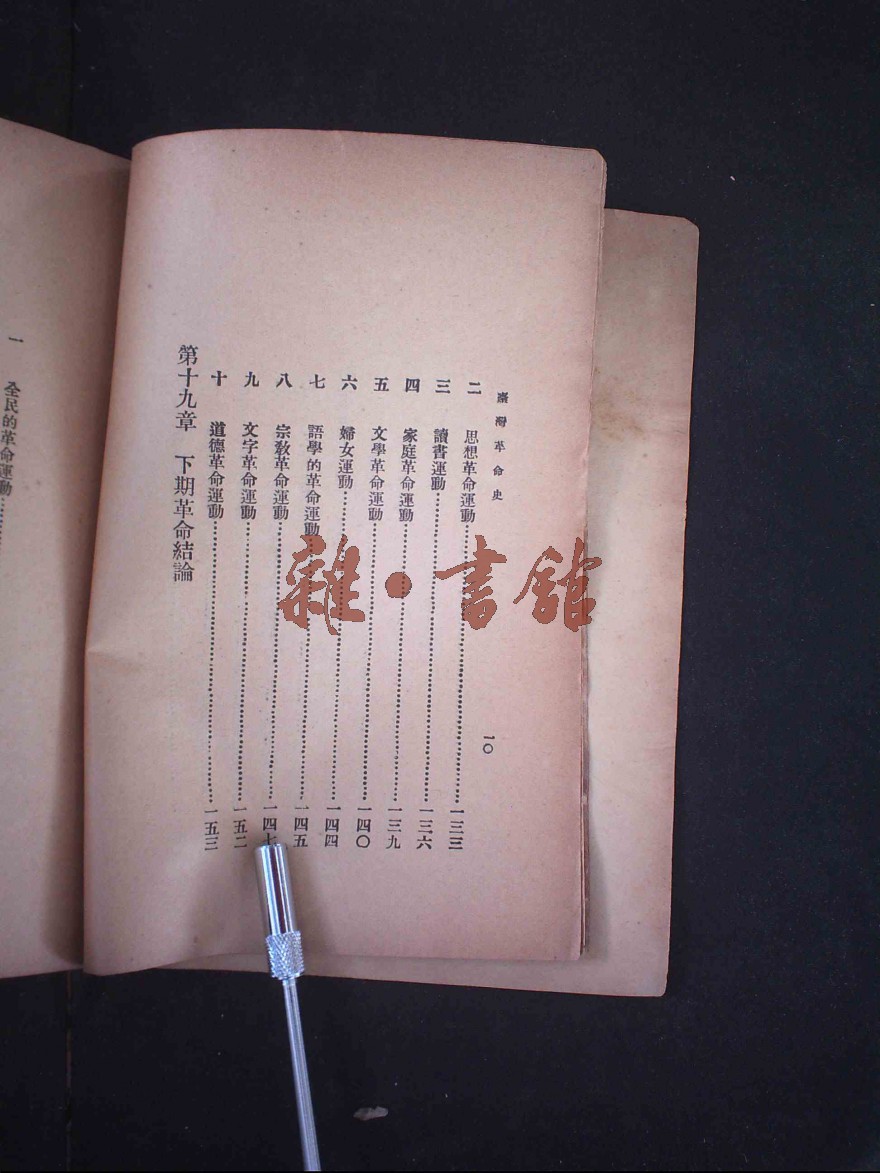 臺灣革命史
一〇
二 思想革命運動……一三三
三 讀書運動……一三六
四 家庭革命運動……一三九
五 文學革命運動……一四〇
六 婦女運動……一四四
七 語學的革命運動……一四五
八 宗教革命運動……一四七
九 文字革命運動……一五二
十 道德革命運動……一五三
第十九章 下期革命結論
一 全民的革命運動……
雜·書館